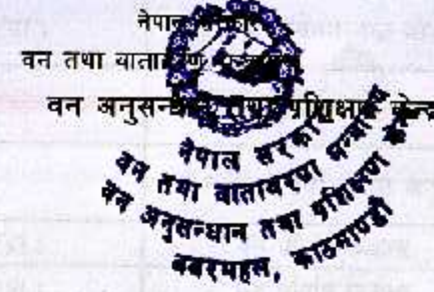 नेपाल सरकार
वन तथा वातावरण
वन अनुसन्धान तथा प्रशिक्षण केन्द्र
नेपाल सरकार
वन तथा वातावरण मन्त्रालय
वन अनुसन्धान तथा प्रशिक्षण के
बबरमहल, काठमाण्डौ